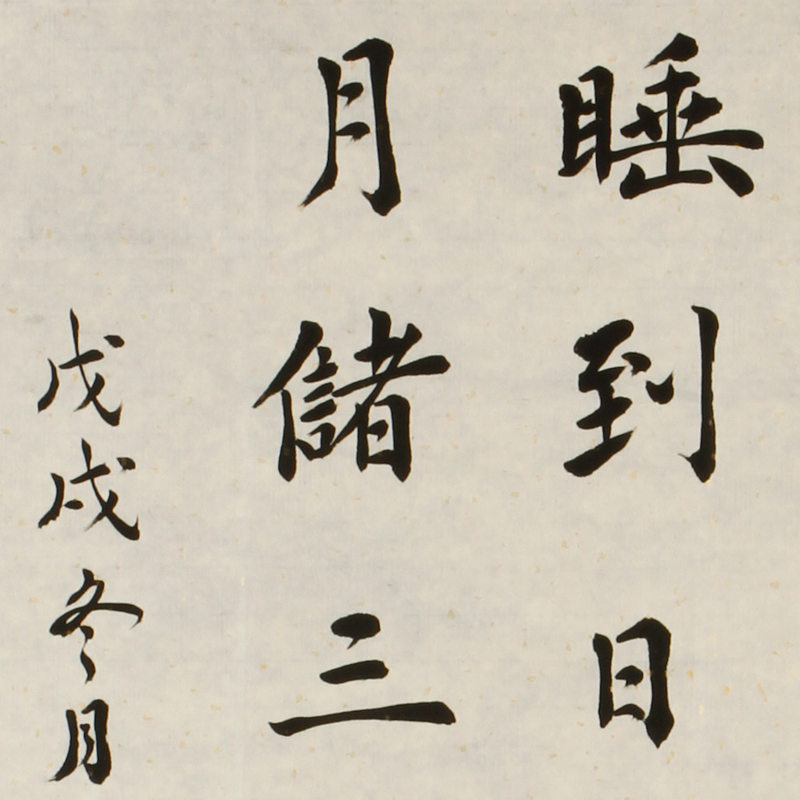 睡到日
月儲三
戊戌冬月